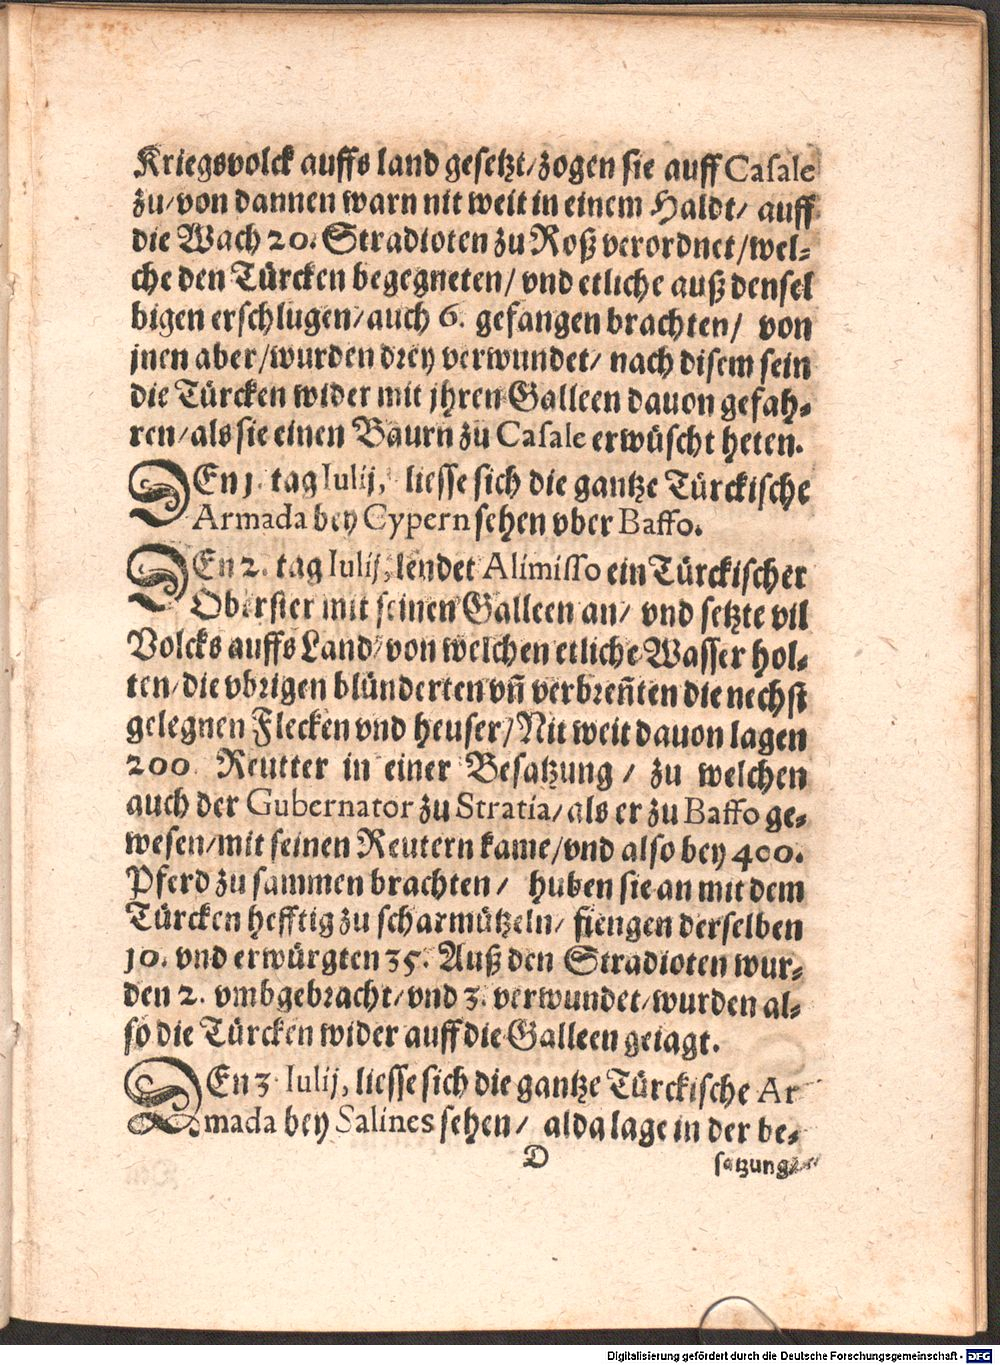 Kriegsvolck auffs land gesetzt/zogen sie auff Casale
zu/von dannen warn nit weit in einem Haldt/ auff
die Wach 20. Stradioten zu Roß verordnet/wel-
che den Türcken begegneten/ vnd etliche auß densel
bigen erschlugen/auch 6. gefangen brachten/ von
jnen aber/wurden drey verwundet/ nach disem sein
die Türcken wider mit jhren Galleen dauon gefah-
ren/als sie einen Baurn zu Casale erwüscht heten.
DEn 1. tag Iulij, liesse sich die gantze Türckische
Armada bey Cypern sehen vber Baffo.
DEn 2. tag Iulij, lendet Alimisso ein Türckischer
Oberster mit seinen Galleen an/ vnd setzte vil
Volcks auffs Land/von welchen etliche Wasser hol-
ten/die vbrigen blünderten vñ verbreñten die nechst
gelegnen Flecken vnd heuser/Nit weit dauon lagen
200. Reutter in einer Besatzung / zu welchen
auch der Gubernator zu Stratia/als er zu Baffo ge-
wesen/mit seinen Reutern kame/vnd also bey 400.
Pferd zu sammen brachten/ huben sie an mit dem
Türcken hefftig zu scharmützeln/ fiengen derselben
10. vnd erwürgten 35. Auß den Stradioten wur-
den 2. vmbgebracht/vnd 3. verwundet/wurden al-
so die Türcken wider auff die Galleen geiagt.
DEn 3. Iulij, liesse sich die gantze Türckische Ar
mada bey Salines sehen/ alda lage in der be-
D
satzung
Digitalisierung gefördert durch die Deutsche Forschungsgemeinschaft - DFG